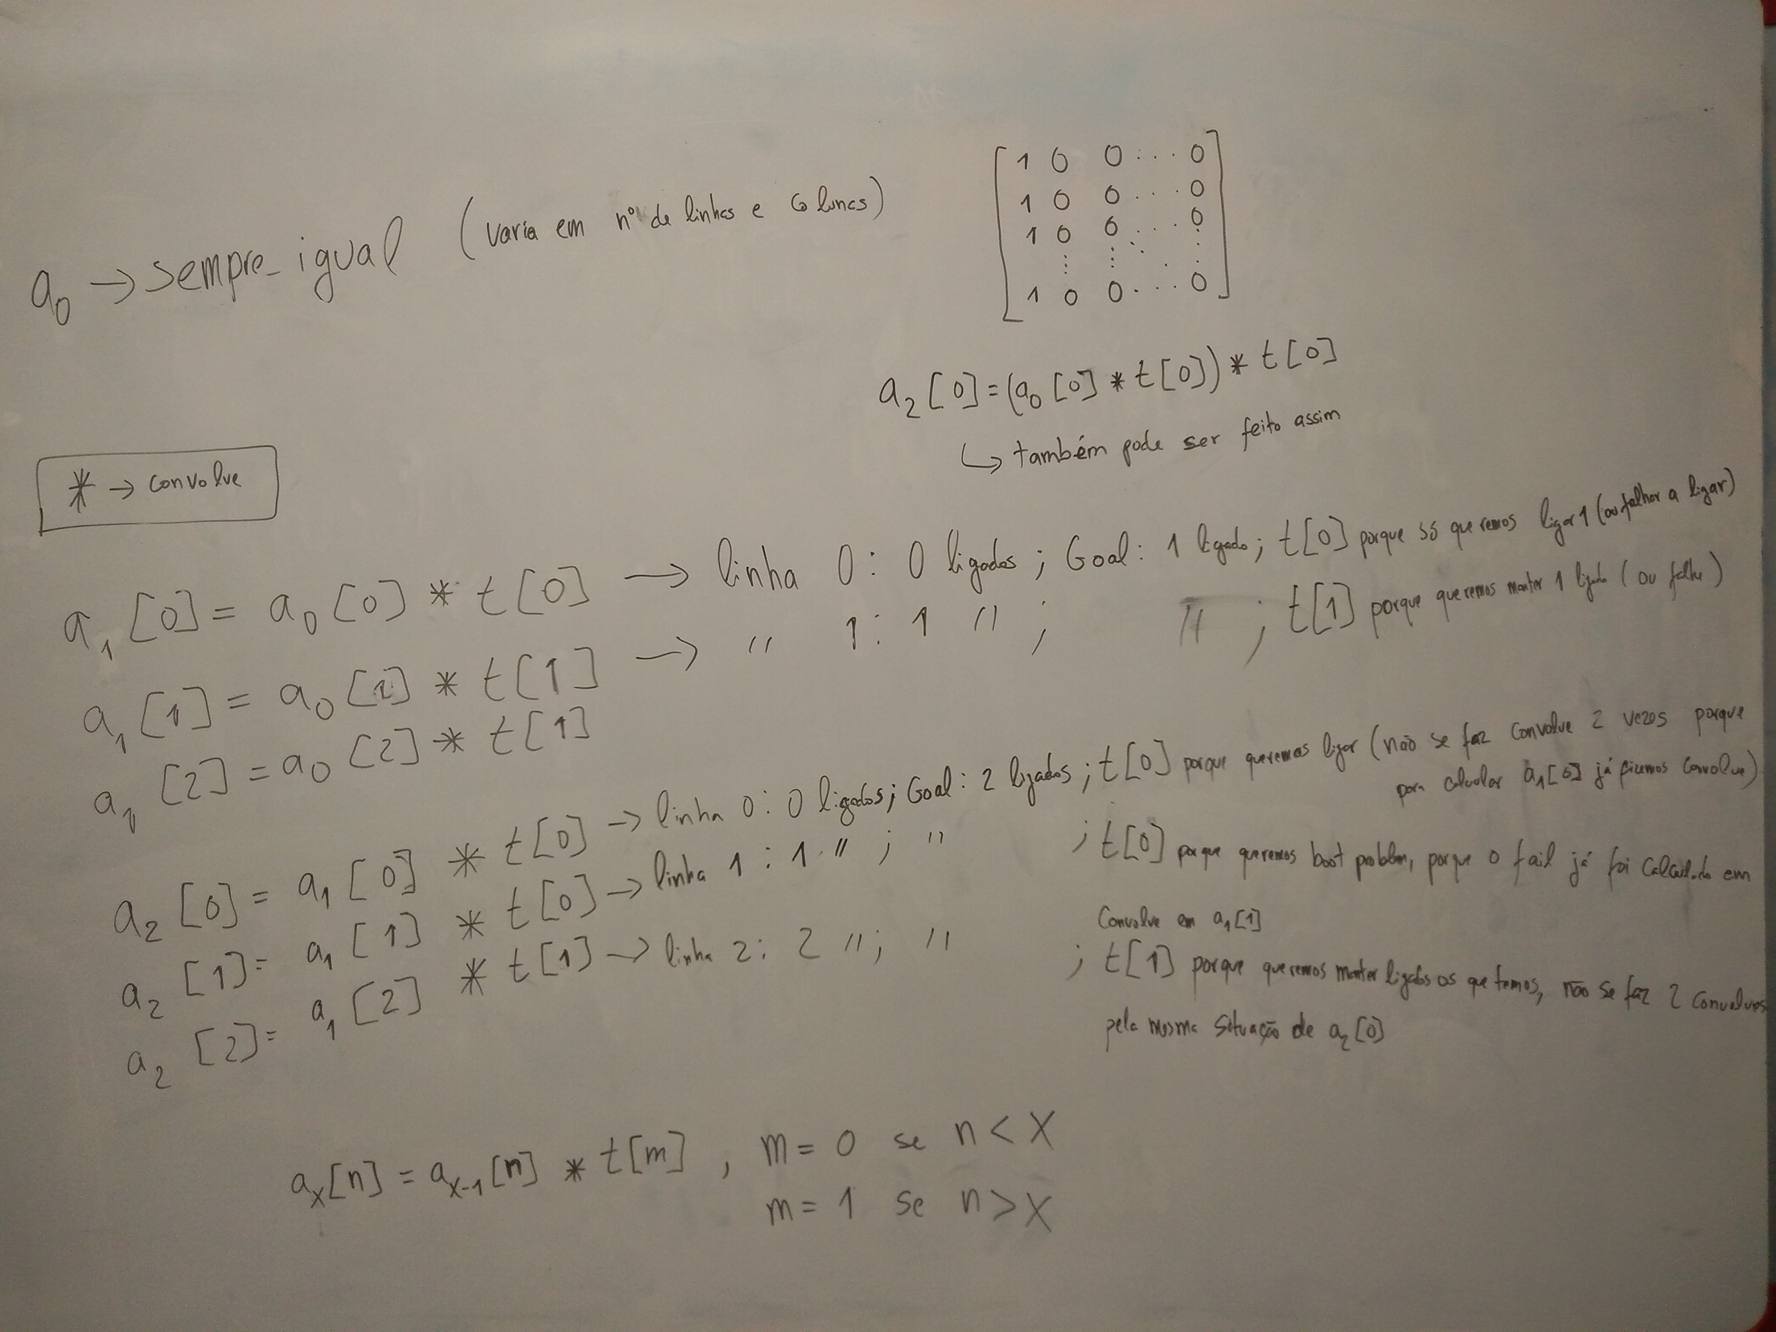 a₀ → sempre igual (varia em nº de linhas e colunas)
[1 0 0 ... 0
1 0 0 ... 0
1 0 0 ... 0
⋮ ⋮ ⋱ ⋮
1 0 0 ... 0]
a₂[0] = (a₀[0] * t[0]) * t[0]
↳ também pode ser feito assim
* → convolve
a₁[0] = a₀[0] * t[0] → linha 0: 0 ligados; Goal: 1 ligado; t[0] porque só queremos ligar 1 (ou falhar a ligar)
a₁[1] = a₀[1] * t[1] → " 1: 1 "; "; t[1] porque queremos manter 1 ligado (ou falha)
a₁[2] = a₀[2] * t[1]
a₂[0] = a₁[0] * t[0] → linha 0: 0 ligados; Goal: 2 ligados; t[0] porque queremos ligar (não se faz convolve 2 vezes porque
para calcular a₁[0] já fizemos convolve)
a₂[1] = a₁[1] * t[0] → linha 1: 1 "; " ; t[0] porque queremos boot problem, porque o fail já foi calculado em
convolve em a₁[1]
a₂[2] = a₁[2] * t[1] → linha 2: 2 "; " ; t[1] porque queremos manter ligados os que temos, não se faz 2 convolves
pela mesma situação de a₂[0]
aₓ[n] = aₓ₋₁[n] * t[m] , m = 0 se n < X
m = 1 se n > X